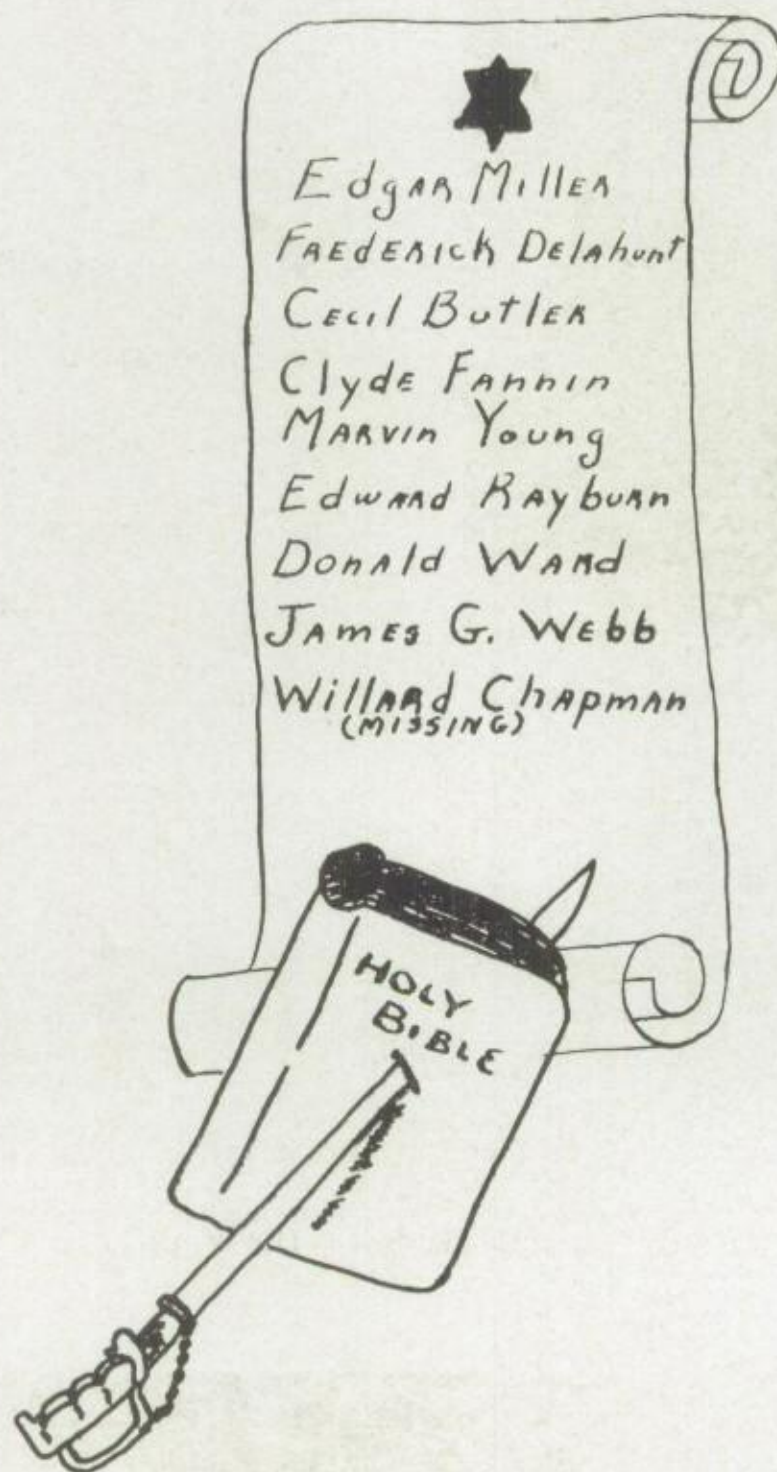 Edgar Miller
Frederick Delahunt
Cecil Butler
Clyde Fannin
Marvin Young
Edward Rayburn
Donald Ward
James G. Webb
Willard Chapman
(MISSING)
HOLY
BIBLE